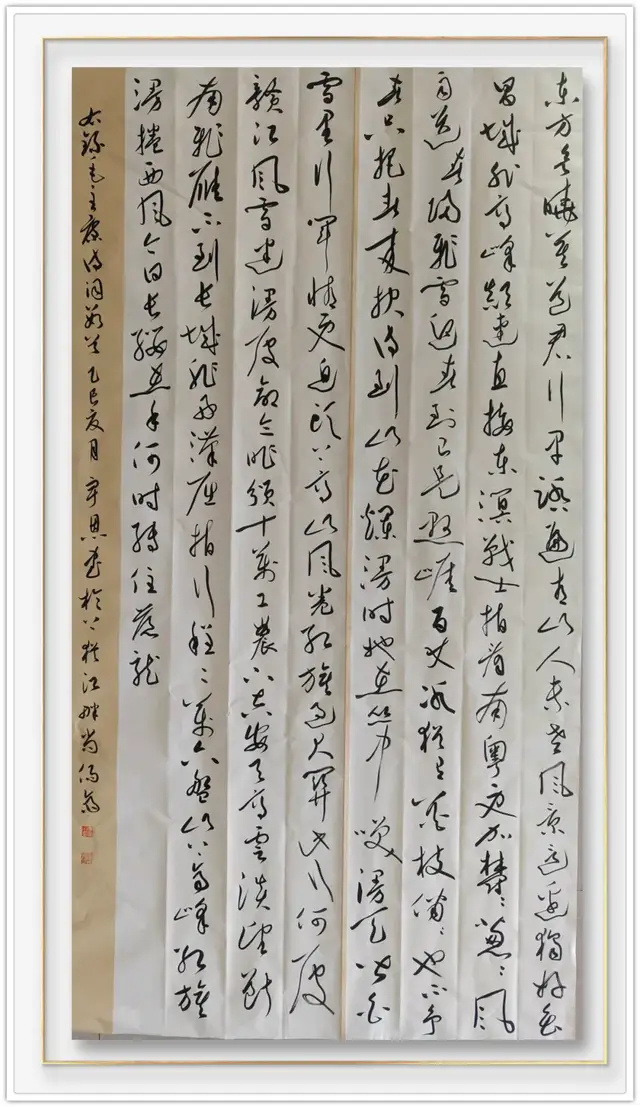 东方欲晓莫道君行早踏遍青山人未老风景这边独好会
昌城外高峰颠连直接东溟战士指看南粤更加郁郁葱葱风
雨送春归飞雪迎春到已是悬崖百丈冰犹有花枝俏俏也不争
春只把春来报待到山花烂漫时她在丛中笑漫天皆白
雪里行军情更迫头上高山风卷红旗过大关此行何处
赣江风雪迷漫处命令昨颁十万工农下吉安天高云淡望断
南飞雁不到长城非好汉屈指行程二万六盘山上高峰红旗
漫卷西风今日长缨在手何时缚住苍龙
右录毛主席诗词数首 乙巳夏月 守恩书于上犹江畔